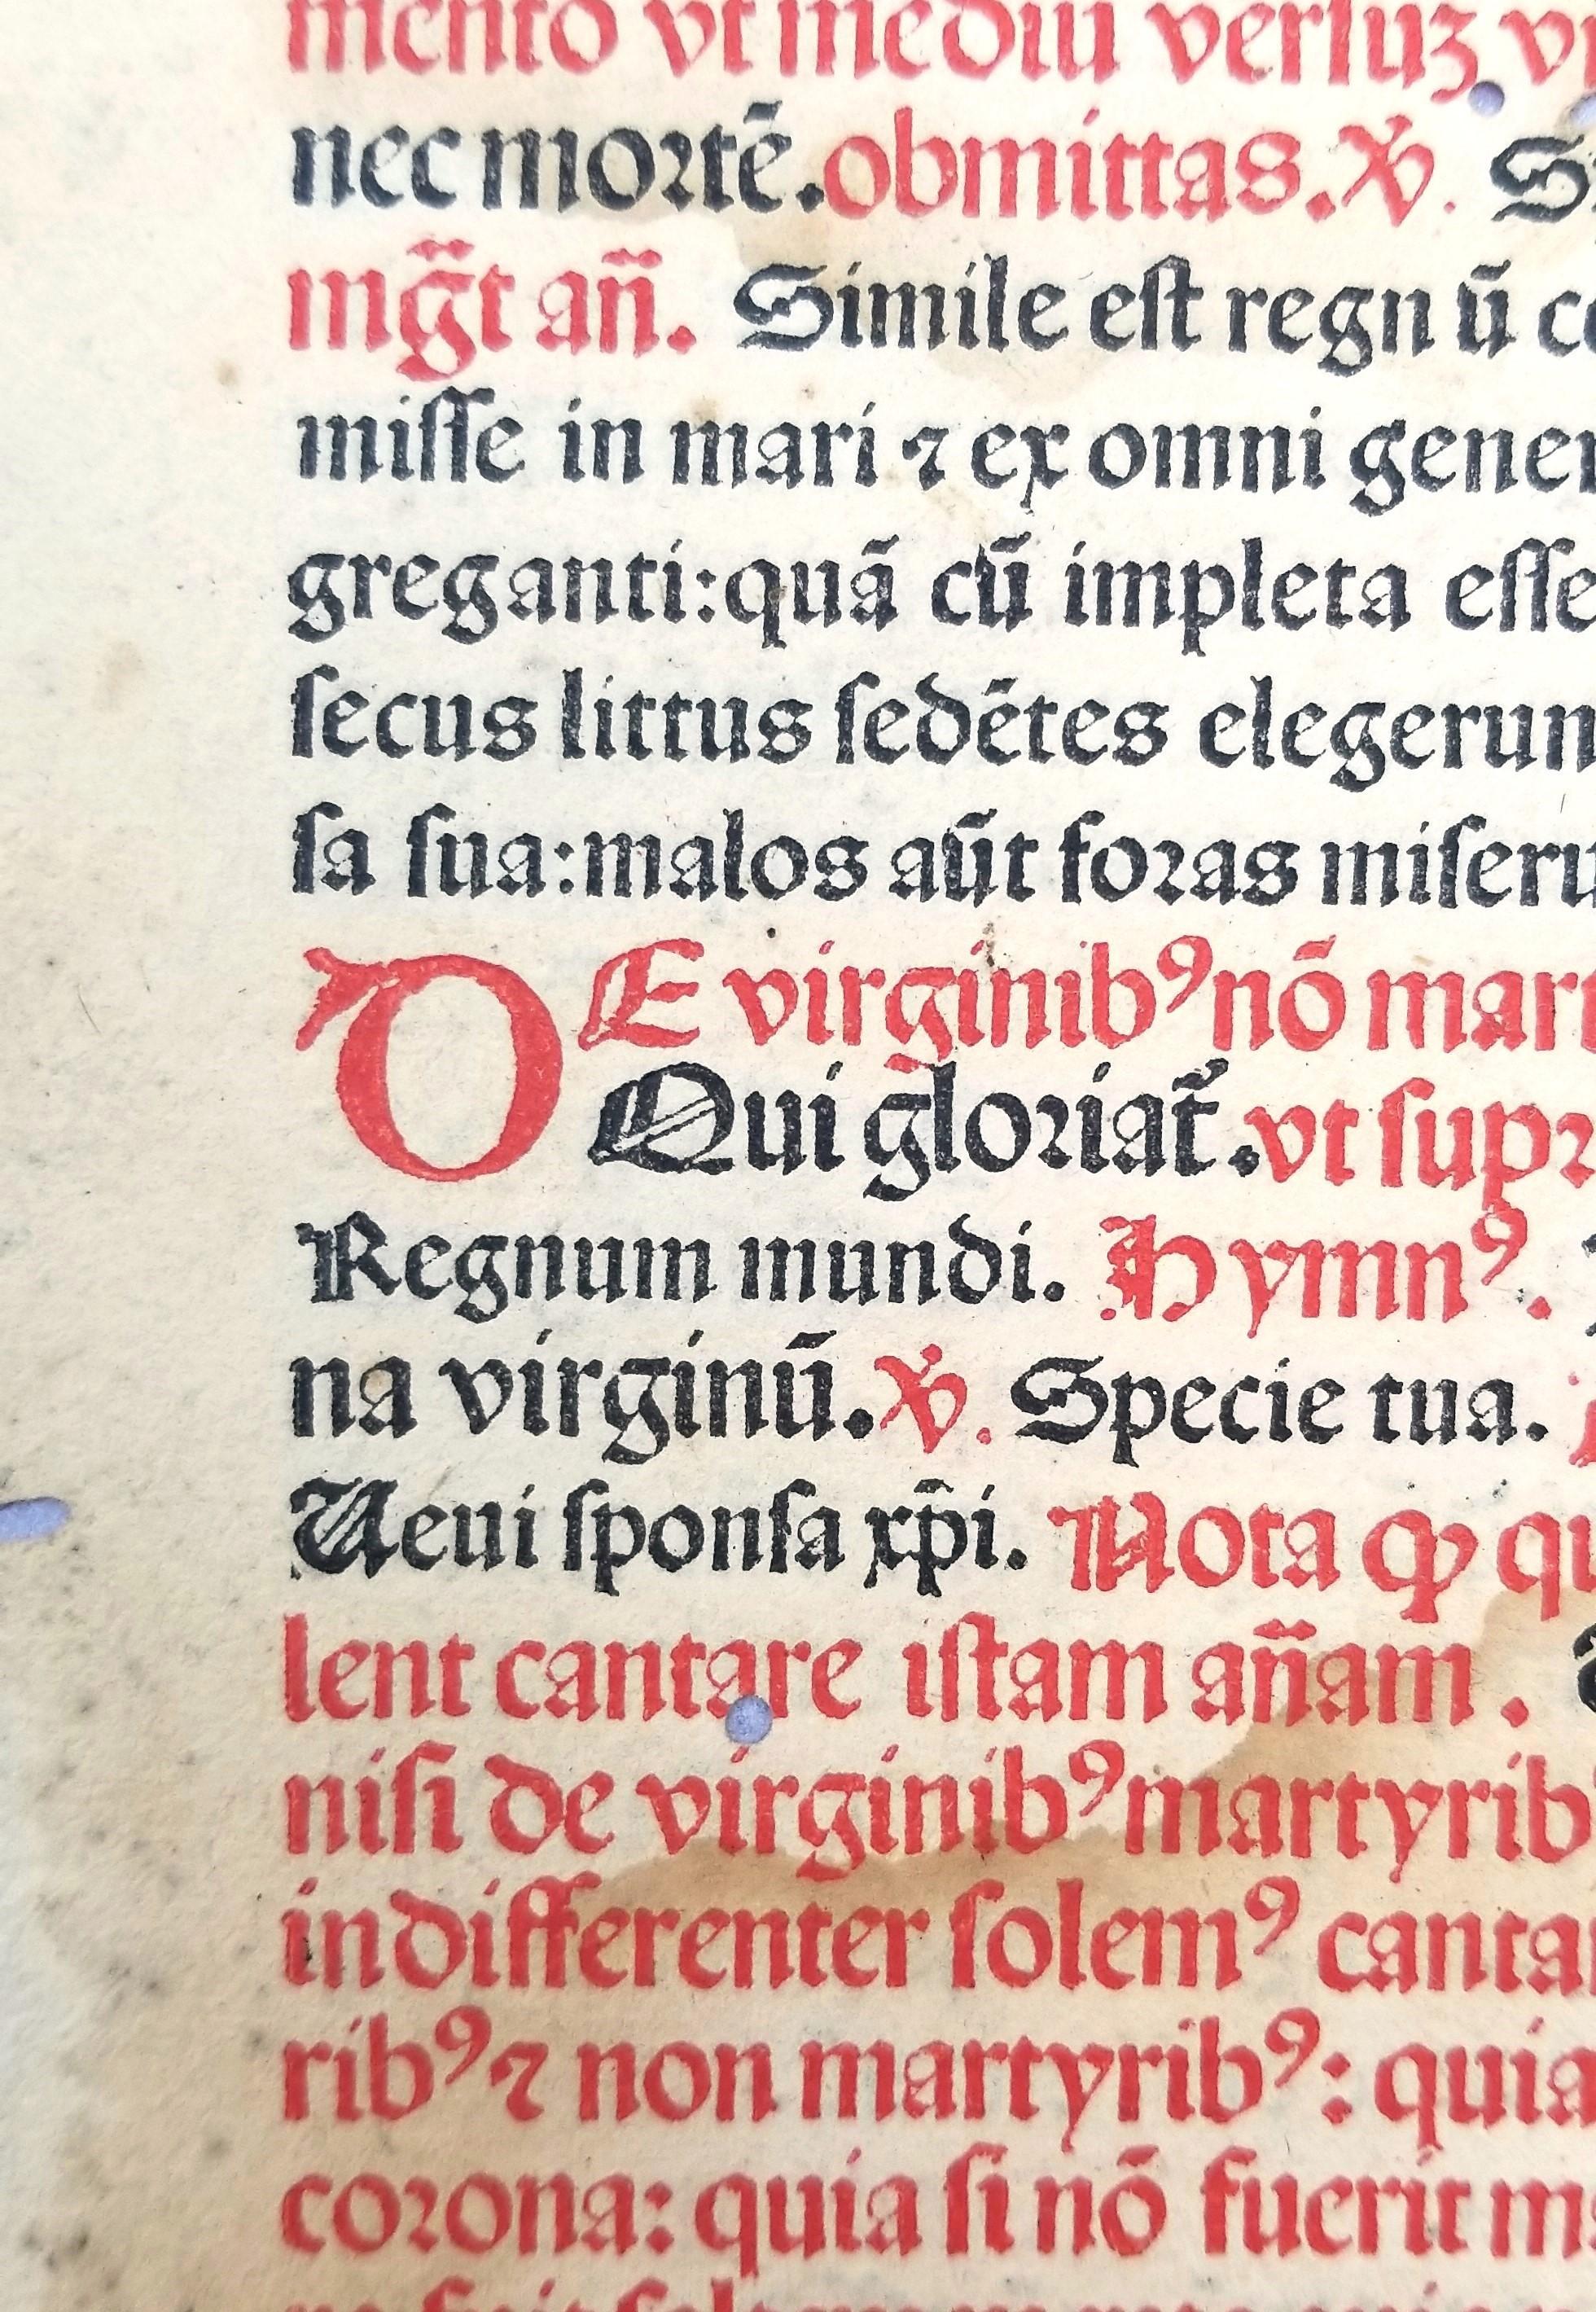 mento vt mediū verſuꝫ
nec mortē. obmittas. ℣.
mg̃t añ. Simile est regnū
miſſe in mari ⁊ ex omni
greganti: quã cū impleta
secus littus ſedētes
ſa ſua: malos aūt foras
DE virginibꝰ nō
Qui gloriat᷑. vt
Regnum mundi. Hymnꝰ.
na virginū. ℣. Specie tua.
Ueui ſponſa xp̄i. Nota ꝙ
lent cantare iſtam añam.
niſi de virginibꝰ martyribꝰ
indifferenter ſolemꝰ
ribꝰ ⁊ non martyribꝰ: quia
corona: quia ſi nō fuerit